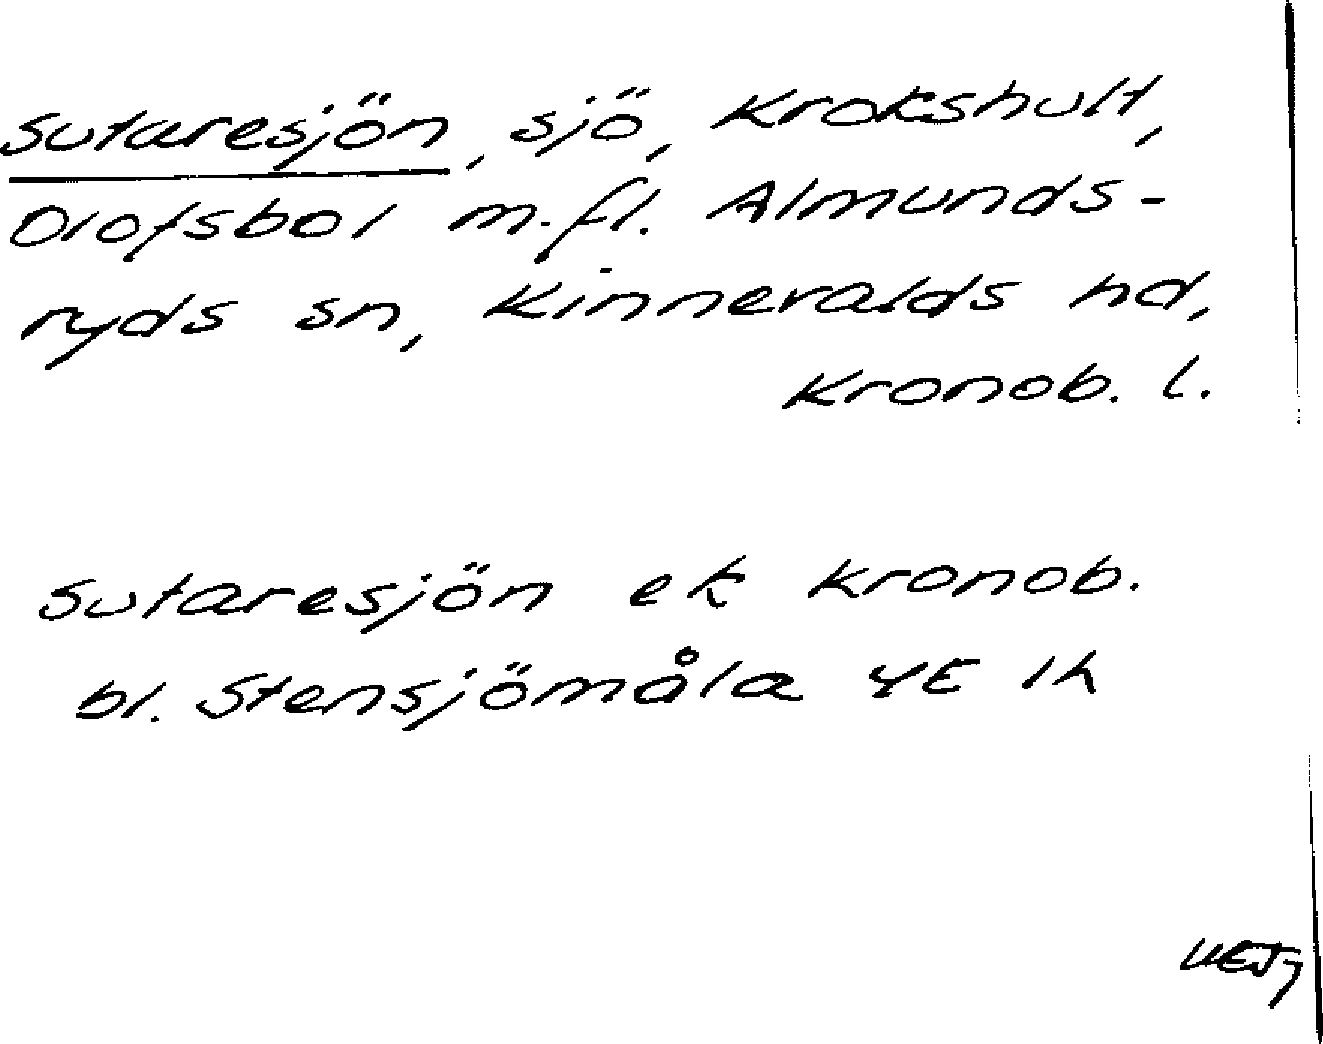 Sutaresjön, sjö, Krokshult,
Olofsbol m.fl. Almunds-
ryds sn, Kinnevalds hd,
Kronob. l.
Sutaresjön ek Kronob.
bl. Stensjömåla 4E 1h